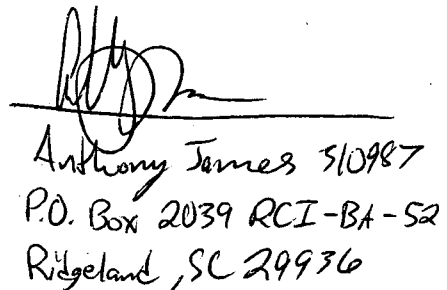 Anthony James 310987
P.O. Box 2039 RCI-BA-52
Ridgeland, SC 29936